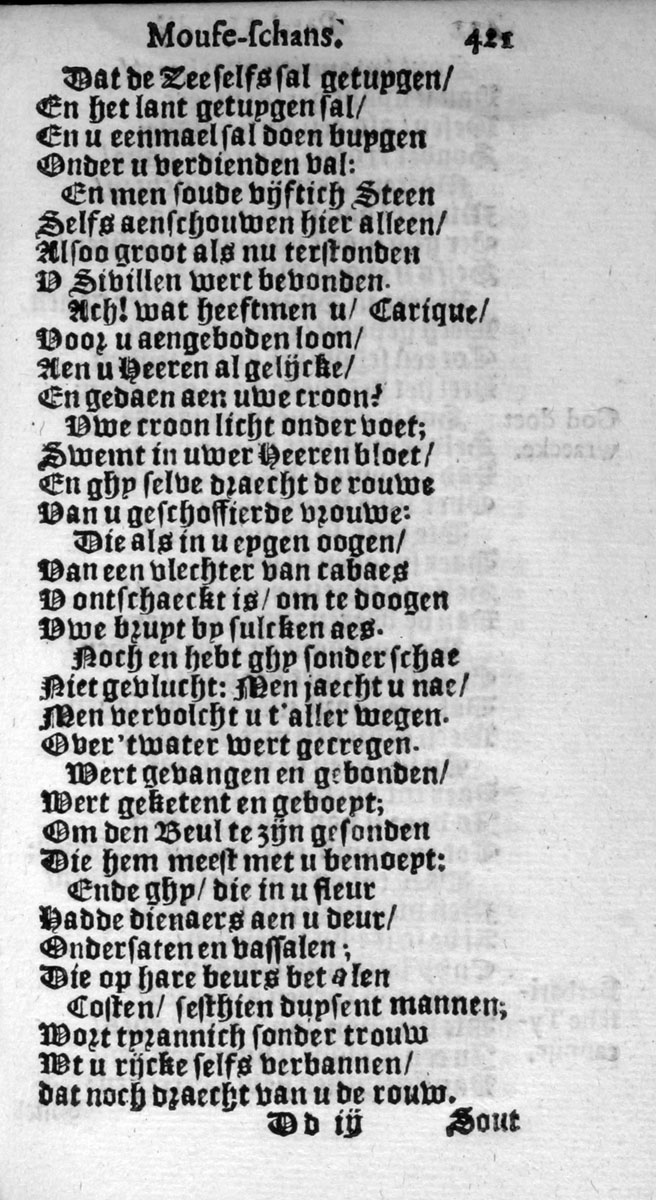 Mouse-schans. 421
Dat de Zee selfs sal getuygen/
En het lant getuygen sal/
En u eenmael sal doen buygen
Onder u verdienden val:
En men soude vijftich Steen
Selfs aenschouwen hier alleen/
Alsoo groot als nu terstonden
V Sivillen wert bevonden.
Ach! wat heeftmen u/ Carique/
Voor u aengeboden loon/
Aen u Heeren al gelijcke/
En gedaen aen uwe croon?
Vwe croon licht onder voet;
Swemt in uwer Heeren bloet/
En ghy selve draecht de rouwe
Van u geschoffierde vrouwe:
Die als in u eygen oogen/
Van een vlechter van cabaes
V ontschaeckt is/ om te doogen
Vwe bruyt by sulcken aes.
Noch en hebt ghy sonder schae
Niet gevlucht: Men jaecht u nae/
Men vervolcht u t'aller wegen.
Over 'twater wert gecregen.
Wert gevangen en gebonden/
Wert geketent en geboeyt;
Om den Beul te zijn gesonden
Die hem meest met u bemoeyt:
Ende ghy/ die in u fleur
Hadde dienaers aen u deur/
Ondersaten en vassalen;
Die op hare beurs betalen
Costen/ sesthien duysent mannen;
Wort tyrannich sonder trouw
Wt u rijcke selfs verbannen/
dat noch draecht van u de rouw.
Dd iij Sout